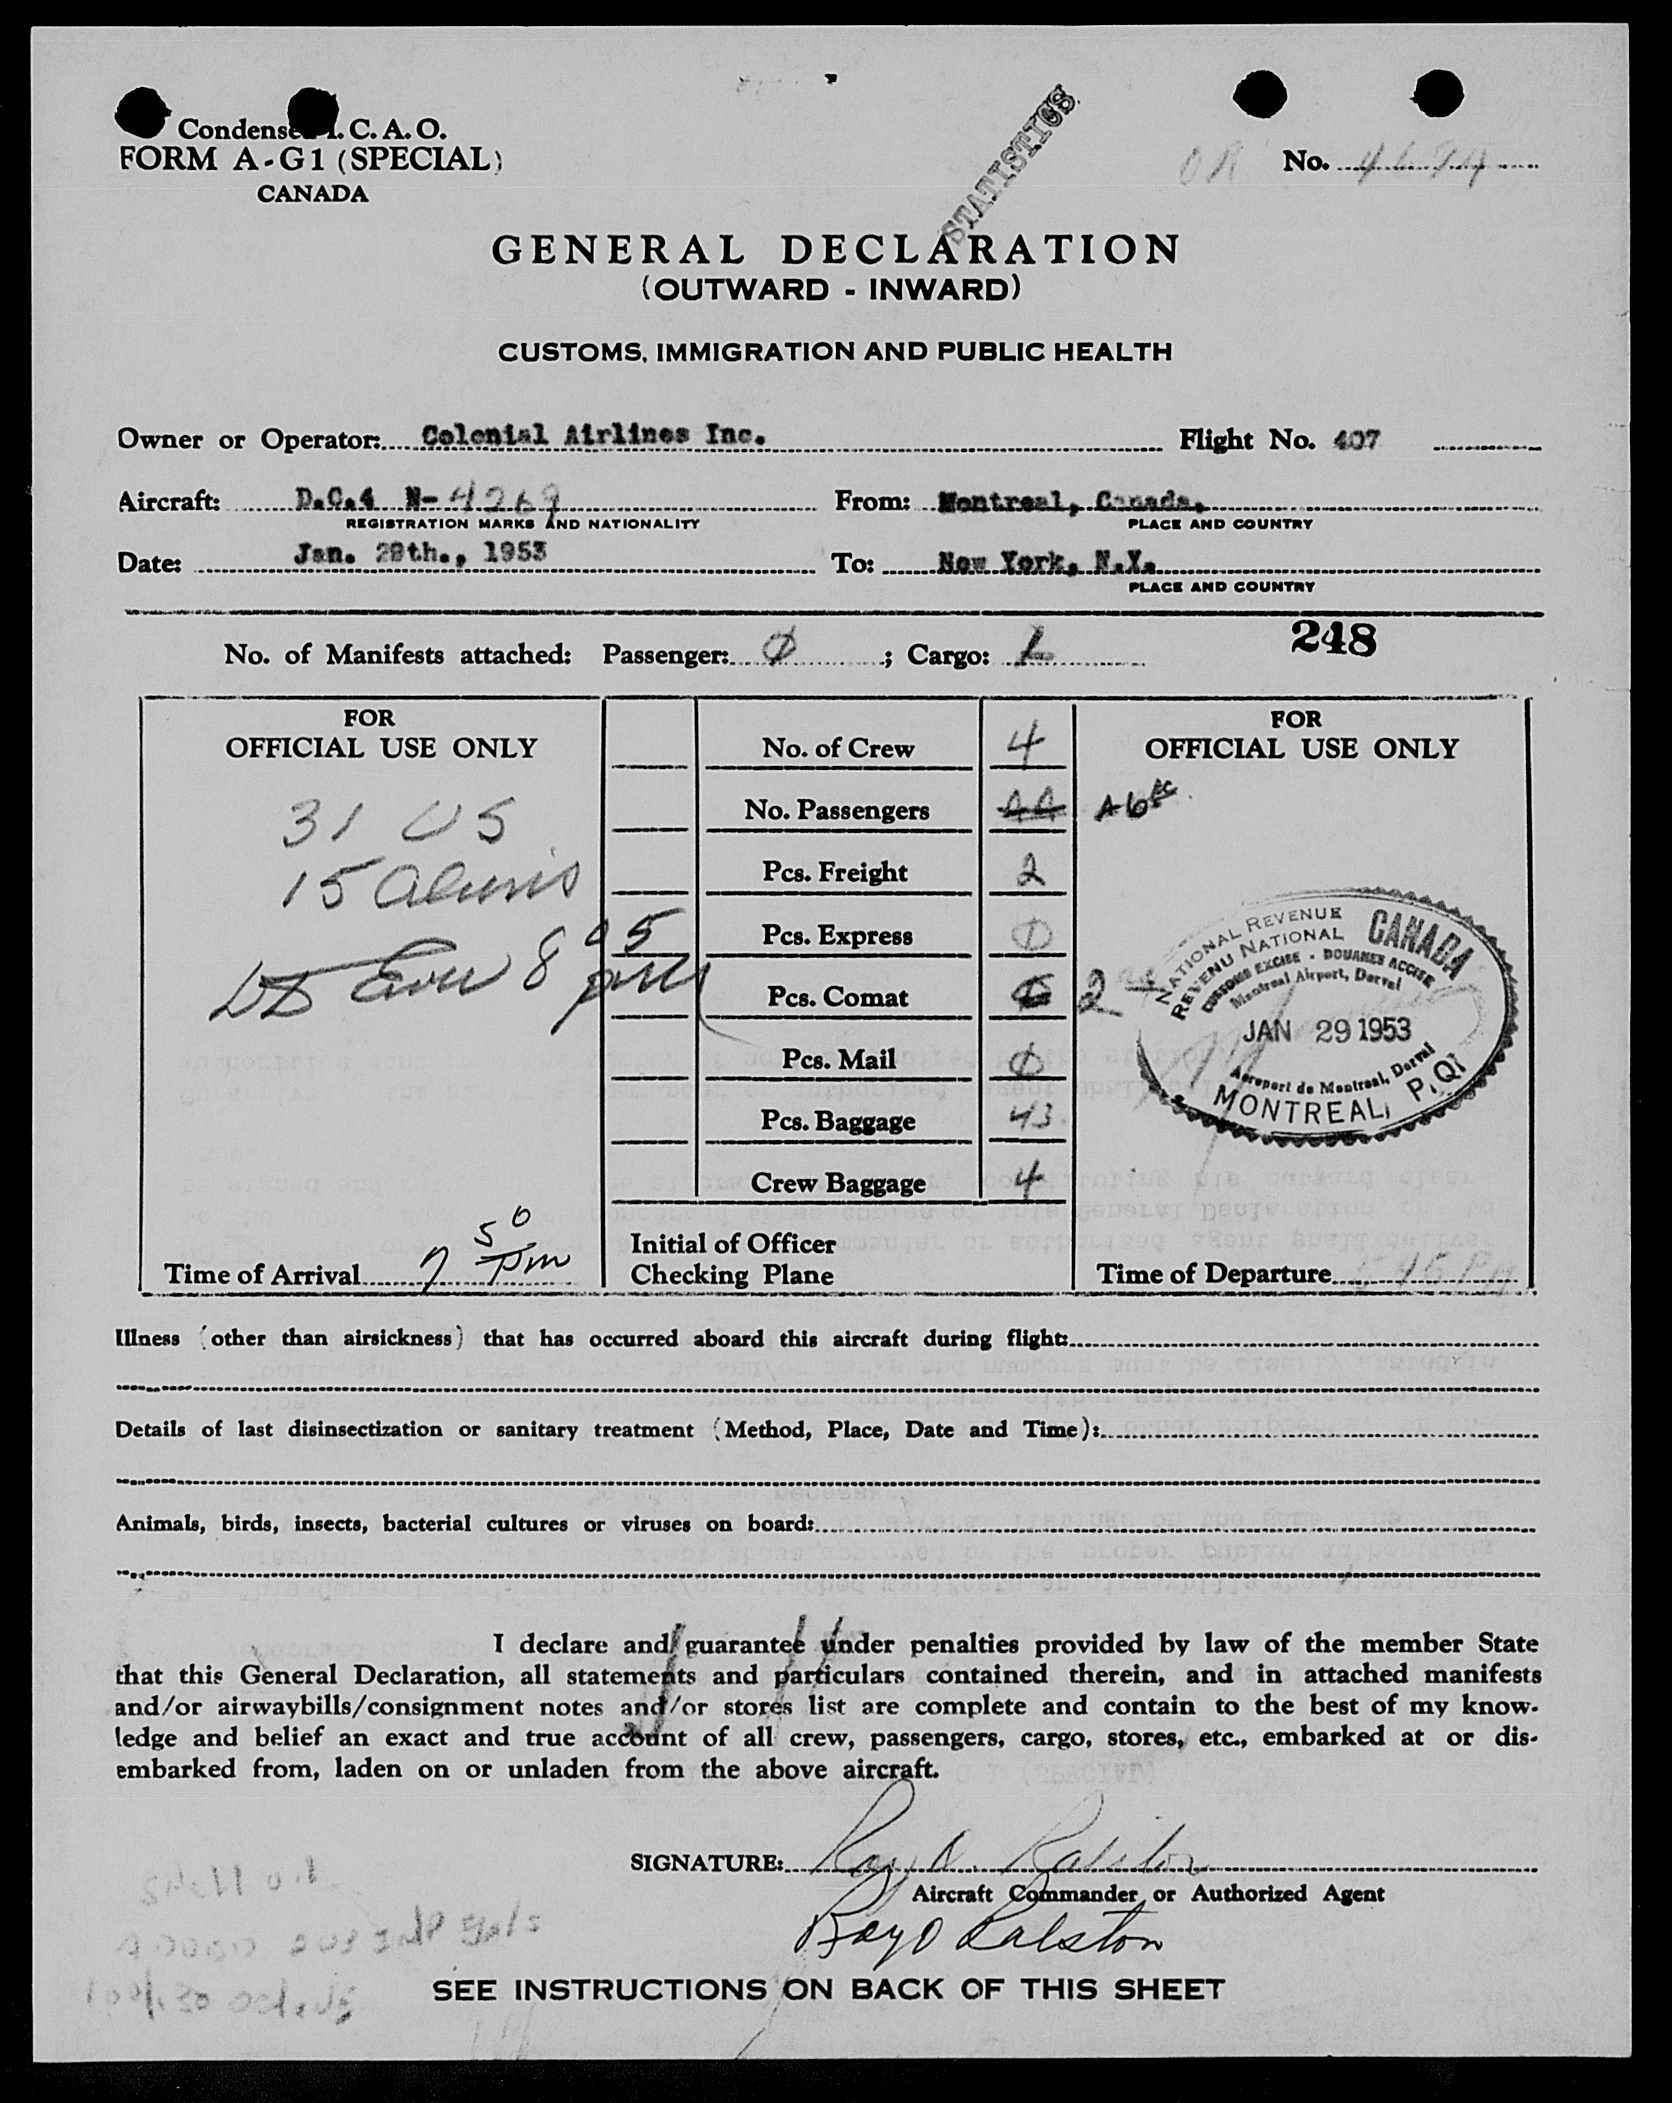 Condensed I. C. A. O.
FORM A-G1 (SPECIAL)
CANADA
STATISTICS
No.
GENERAL DECLARATION
(OUTWARD - INWARD)
CUSTOMS, IMMIGRATION AND PUBLIC HEALTH
Owner or Operator: Colonial Airlines Inc. Flight No. 407
Aircraft: D.C.4 N-4269 From: Montreal, Canada.
REGISTRATION MARKS AND NATIONALITY PLACE AND COUNTRY
Date: Jan. 29th., 1953 To: New York, N.Y.
PLACE AND COUNTRY
248
No. of Manifests attached: Passenger: 0 ; Cargo: 1
FOR
OFFICIAL USE ONLY
31 US
15 aliens
8 05
pm
Time of Arrival 7 50 pm
No. of Crew 4
No. Passengers 44 46
Pcs. Freight 2
Pcs. Express 0
Pcs. Comat 2
Pcs. Mail 0
Pcs. Baggage 43
Crew Baggage 4
Initial of Officer
Checking Plane
FOR
OFFICIAL USE ONLY
NATIONAL REVENUE
REVENU NATIONAL
CANADA
CUSTOMS EXCISE - DOUANES ACCISE
Montreal Airport, Dorval
JAN 29 1953
Aeroport de Montreal, Dorval
MONTREAL, P.Q.
Time of Departure 5 45 PM
Illness (other than airsickness) that has occurred aboard this aircraft during flight:
Details of last disinsectization or sanitary treatment (Method, Place, Date and Time):
Animals, birds, insects, bacterial cultures or viruses on board:
I declare and guarantee under penalties provided by law of the member State
that this General Declaration, all statements and particulars contained therein, and in attached manifests
and/or airwaybills/consignment notes and/or stores list are complete and contain to the best of my know-
ledge and belief an exact and true account of all crew, passengers, cargo, stores, etc., embarked at or dis-
embarked from, laden on or unladen from the above aircraft.
SIGNATURE: Ray D. Ralston
Aircraft Commander or Authorized Agent
Ray D Ralston
SEE INSTRUCTIONS ON BACK OF THIS SHEET